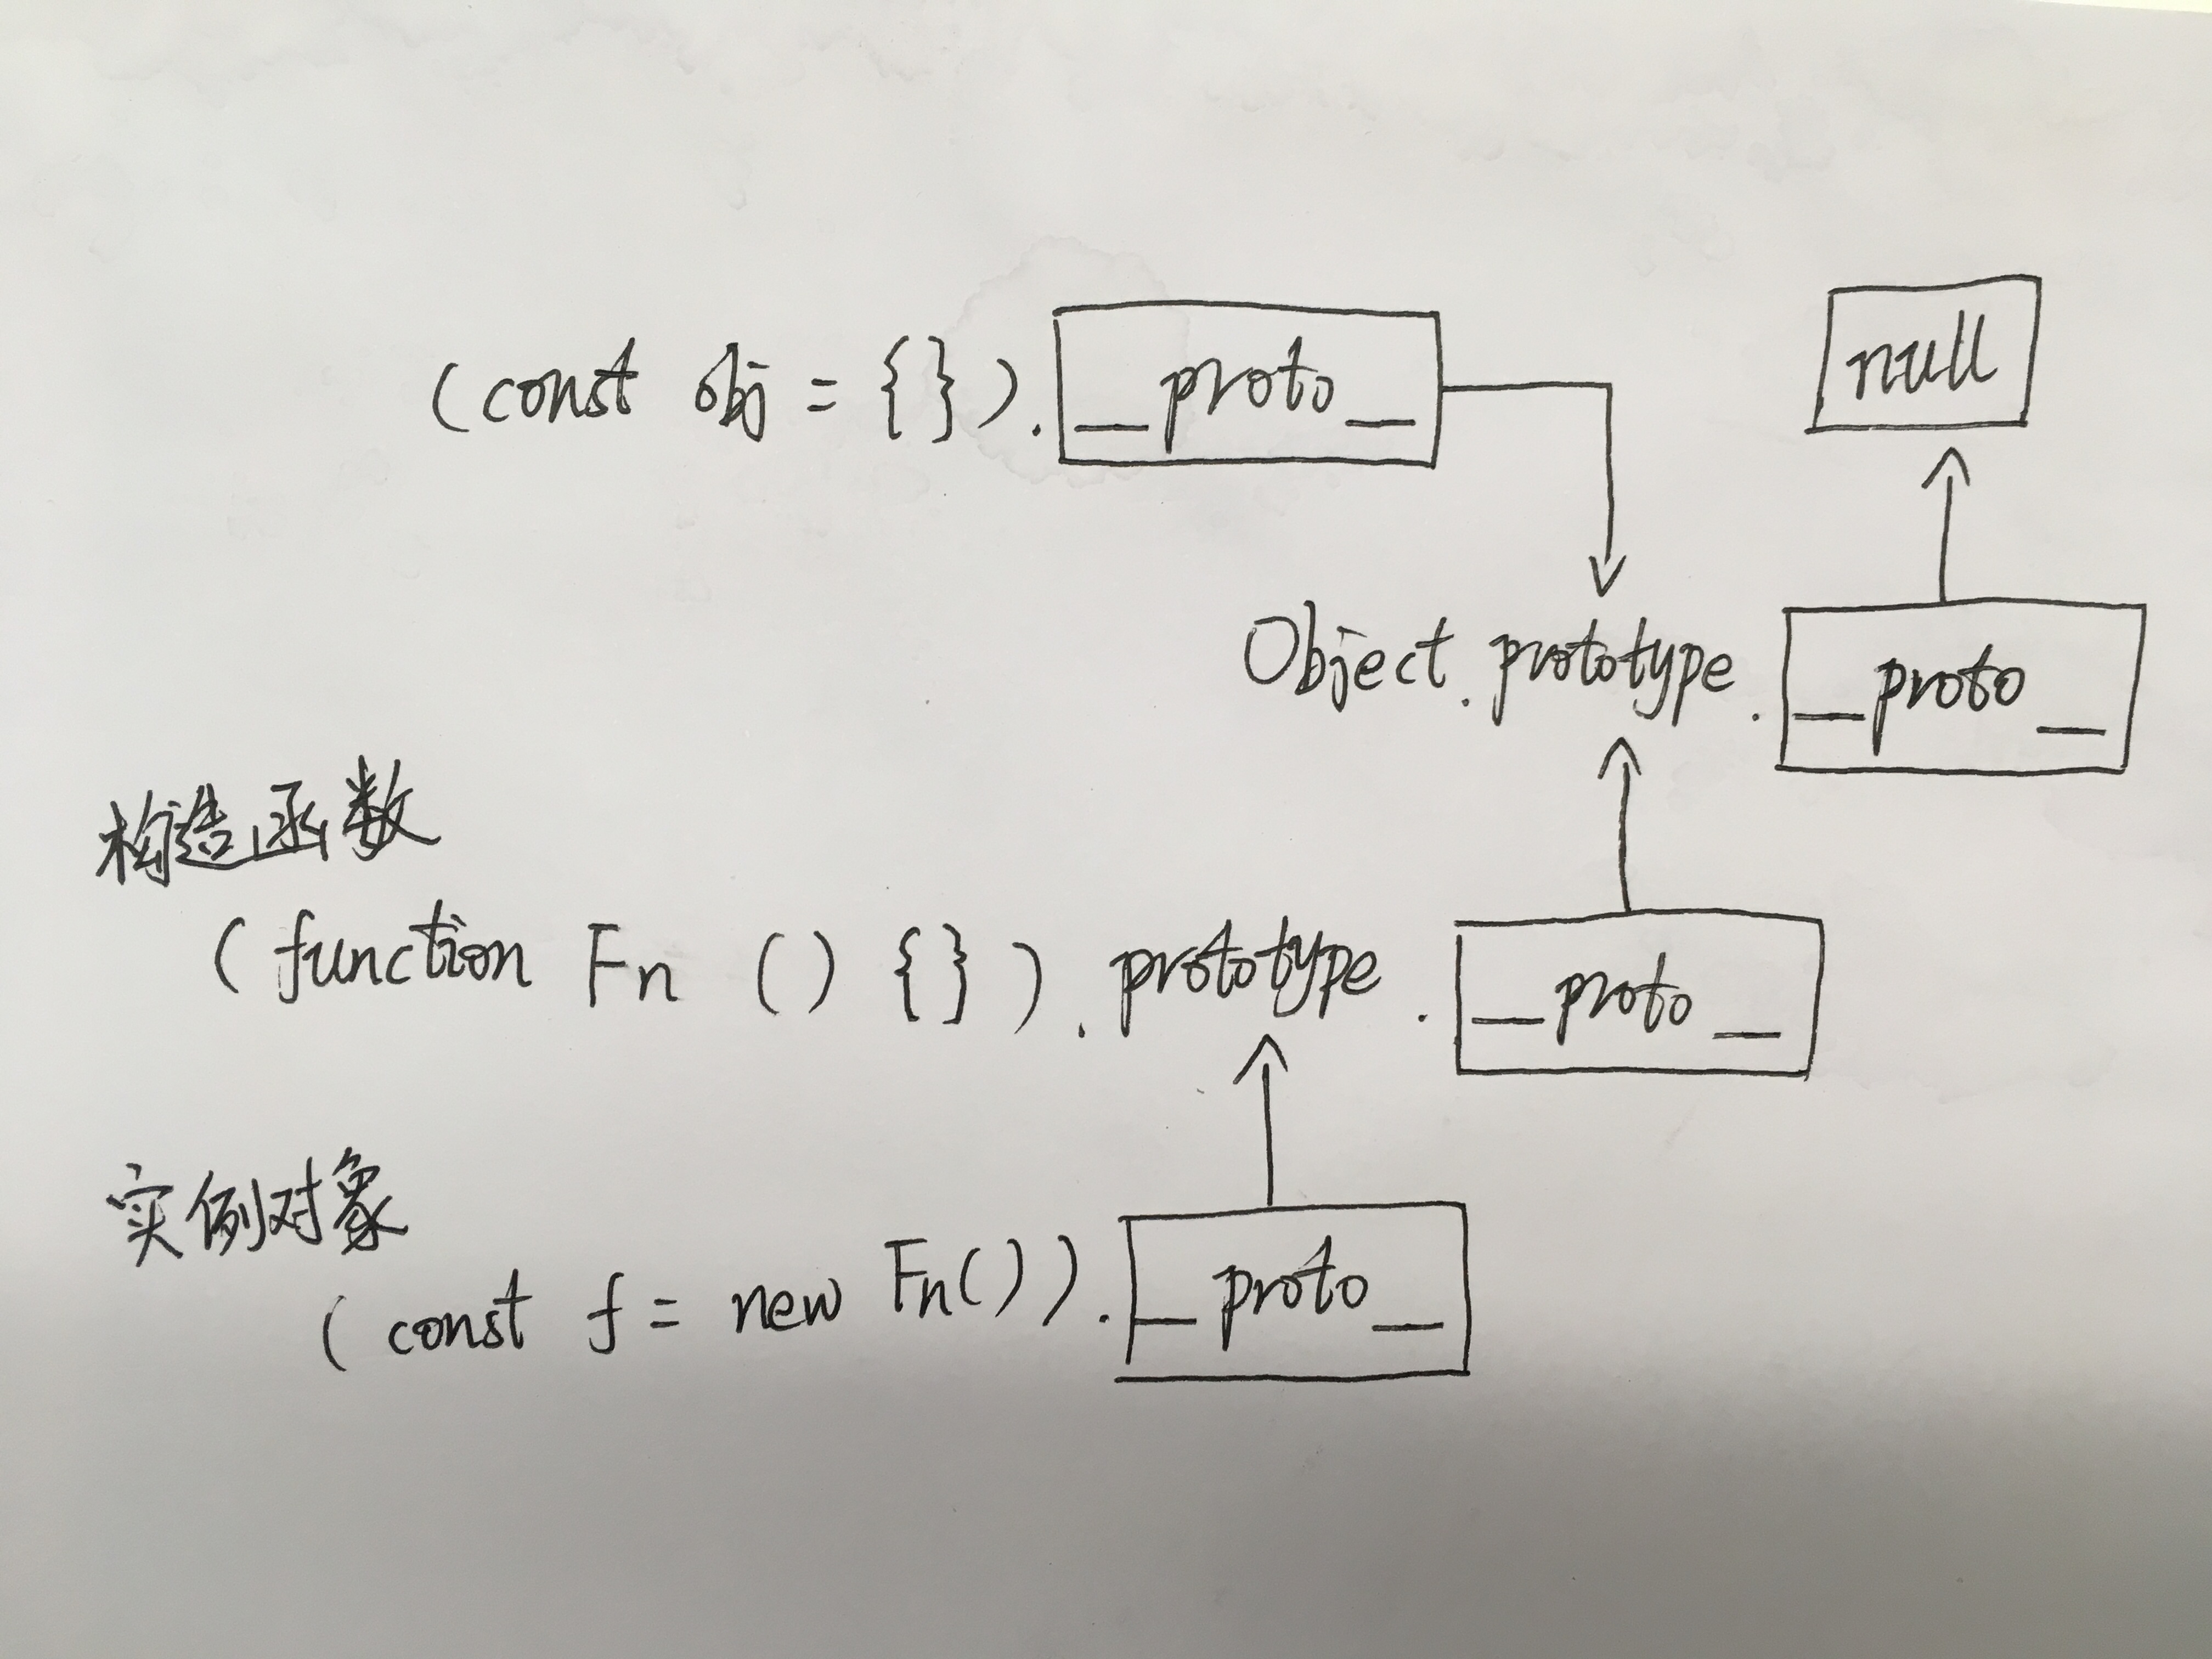 (const obj = {}). __proto__
null
Object.prototype.__proto__
构造函数
(function Fn () {}).prototype.__proto__
实例对象
(const f = new Fn()).__proto__